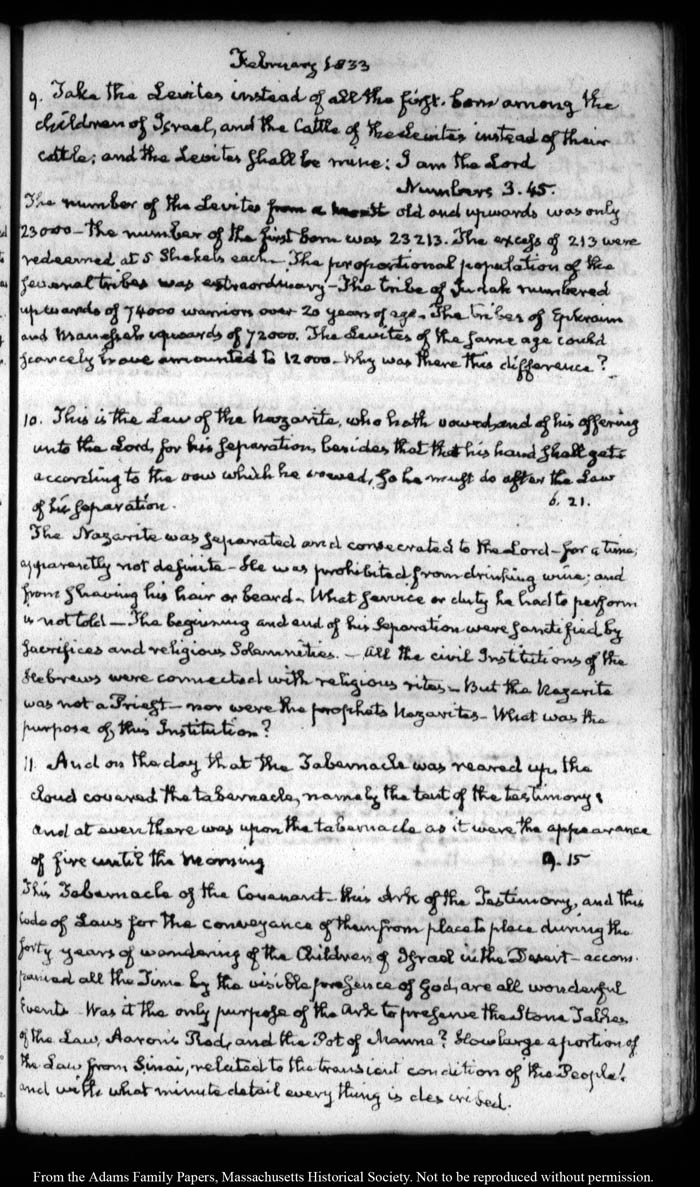 February 1833
9. Take the Levites instead of all the first-born among the
children of Israel, and the Cattle of the Levites instead of their
cattle; and the Levites shall be mine: I am the Lord
Numbers 3. 45.
The number of the Levites from a month old and upwards was only
23000 – the number of the first born was 23213. The excess of 213 were
redeemed at 5 Shekels each – The proportional population of the
several tribes was extraordinary – The tribe of Judah numbered
upwards of 74000 warriors over 20 years of age. The tribes of Ephraim
and Manasseh upwards of 72000. The Levites of the same age could
scarcely have amounted to 12000 – Why was there this difference?
10. This is the Law of the Nazarite, who hath vowed, and of his offering
unto the Lord, for his separation, besides that that his hand shall get:
according to the vow which he vowed, so he must do after the Law
of his separation.
6. 21.
The Nazarite was separated and consecrated to the Lord – for a time,
apparently not definite – He was prohibited from drinking wine; and
from shaving his hair or beard – What service or duty he had to perform
is not told – The beginning and end of his separation were sanctified by
sacrifices and religious Solemnities. – All the civil Institutions of the
Hebrews were connected with religious rites – But the Nazarite
was not a Priest – nor were the prophets Nazarites – What was the
purpose of this Institution?
11. And on the day that the Tabernacle was reared up, the
cloud covered the tabernacle, namely the tent of the testimony;
and at even there was upon the tabernacle as it were the appearance
of fire until the morning
9. 15
This Tabernacle of the Covenant – this Ark of the Testimony, and this
Code of Laws for the conveyance of them from place to place during the
forty years of wandering of the Children of Israel in the Desert – accom-
panied all the Time by the visible presence of God, are all wonderful
Events – Was it the only purpose of the Ark to preserve the Stone Tables
of the Law, Aaron's Rod, and the Pot of Manna? How large a portion of
the Law from Sinai, related to the transient condition of the People!
and with what minute detail every thing is described.
From the Adams Family Papers, Massachusetts Historical Society. Not to be reproduced without permission.